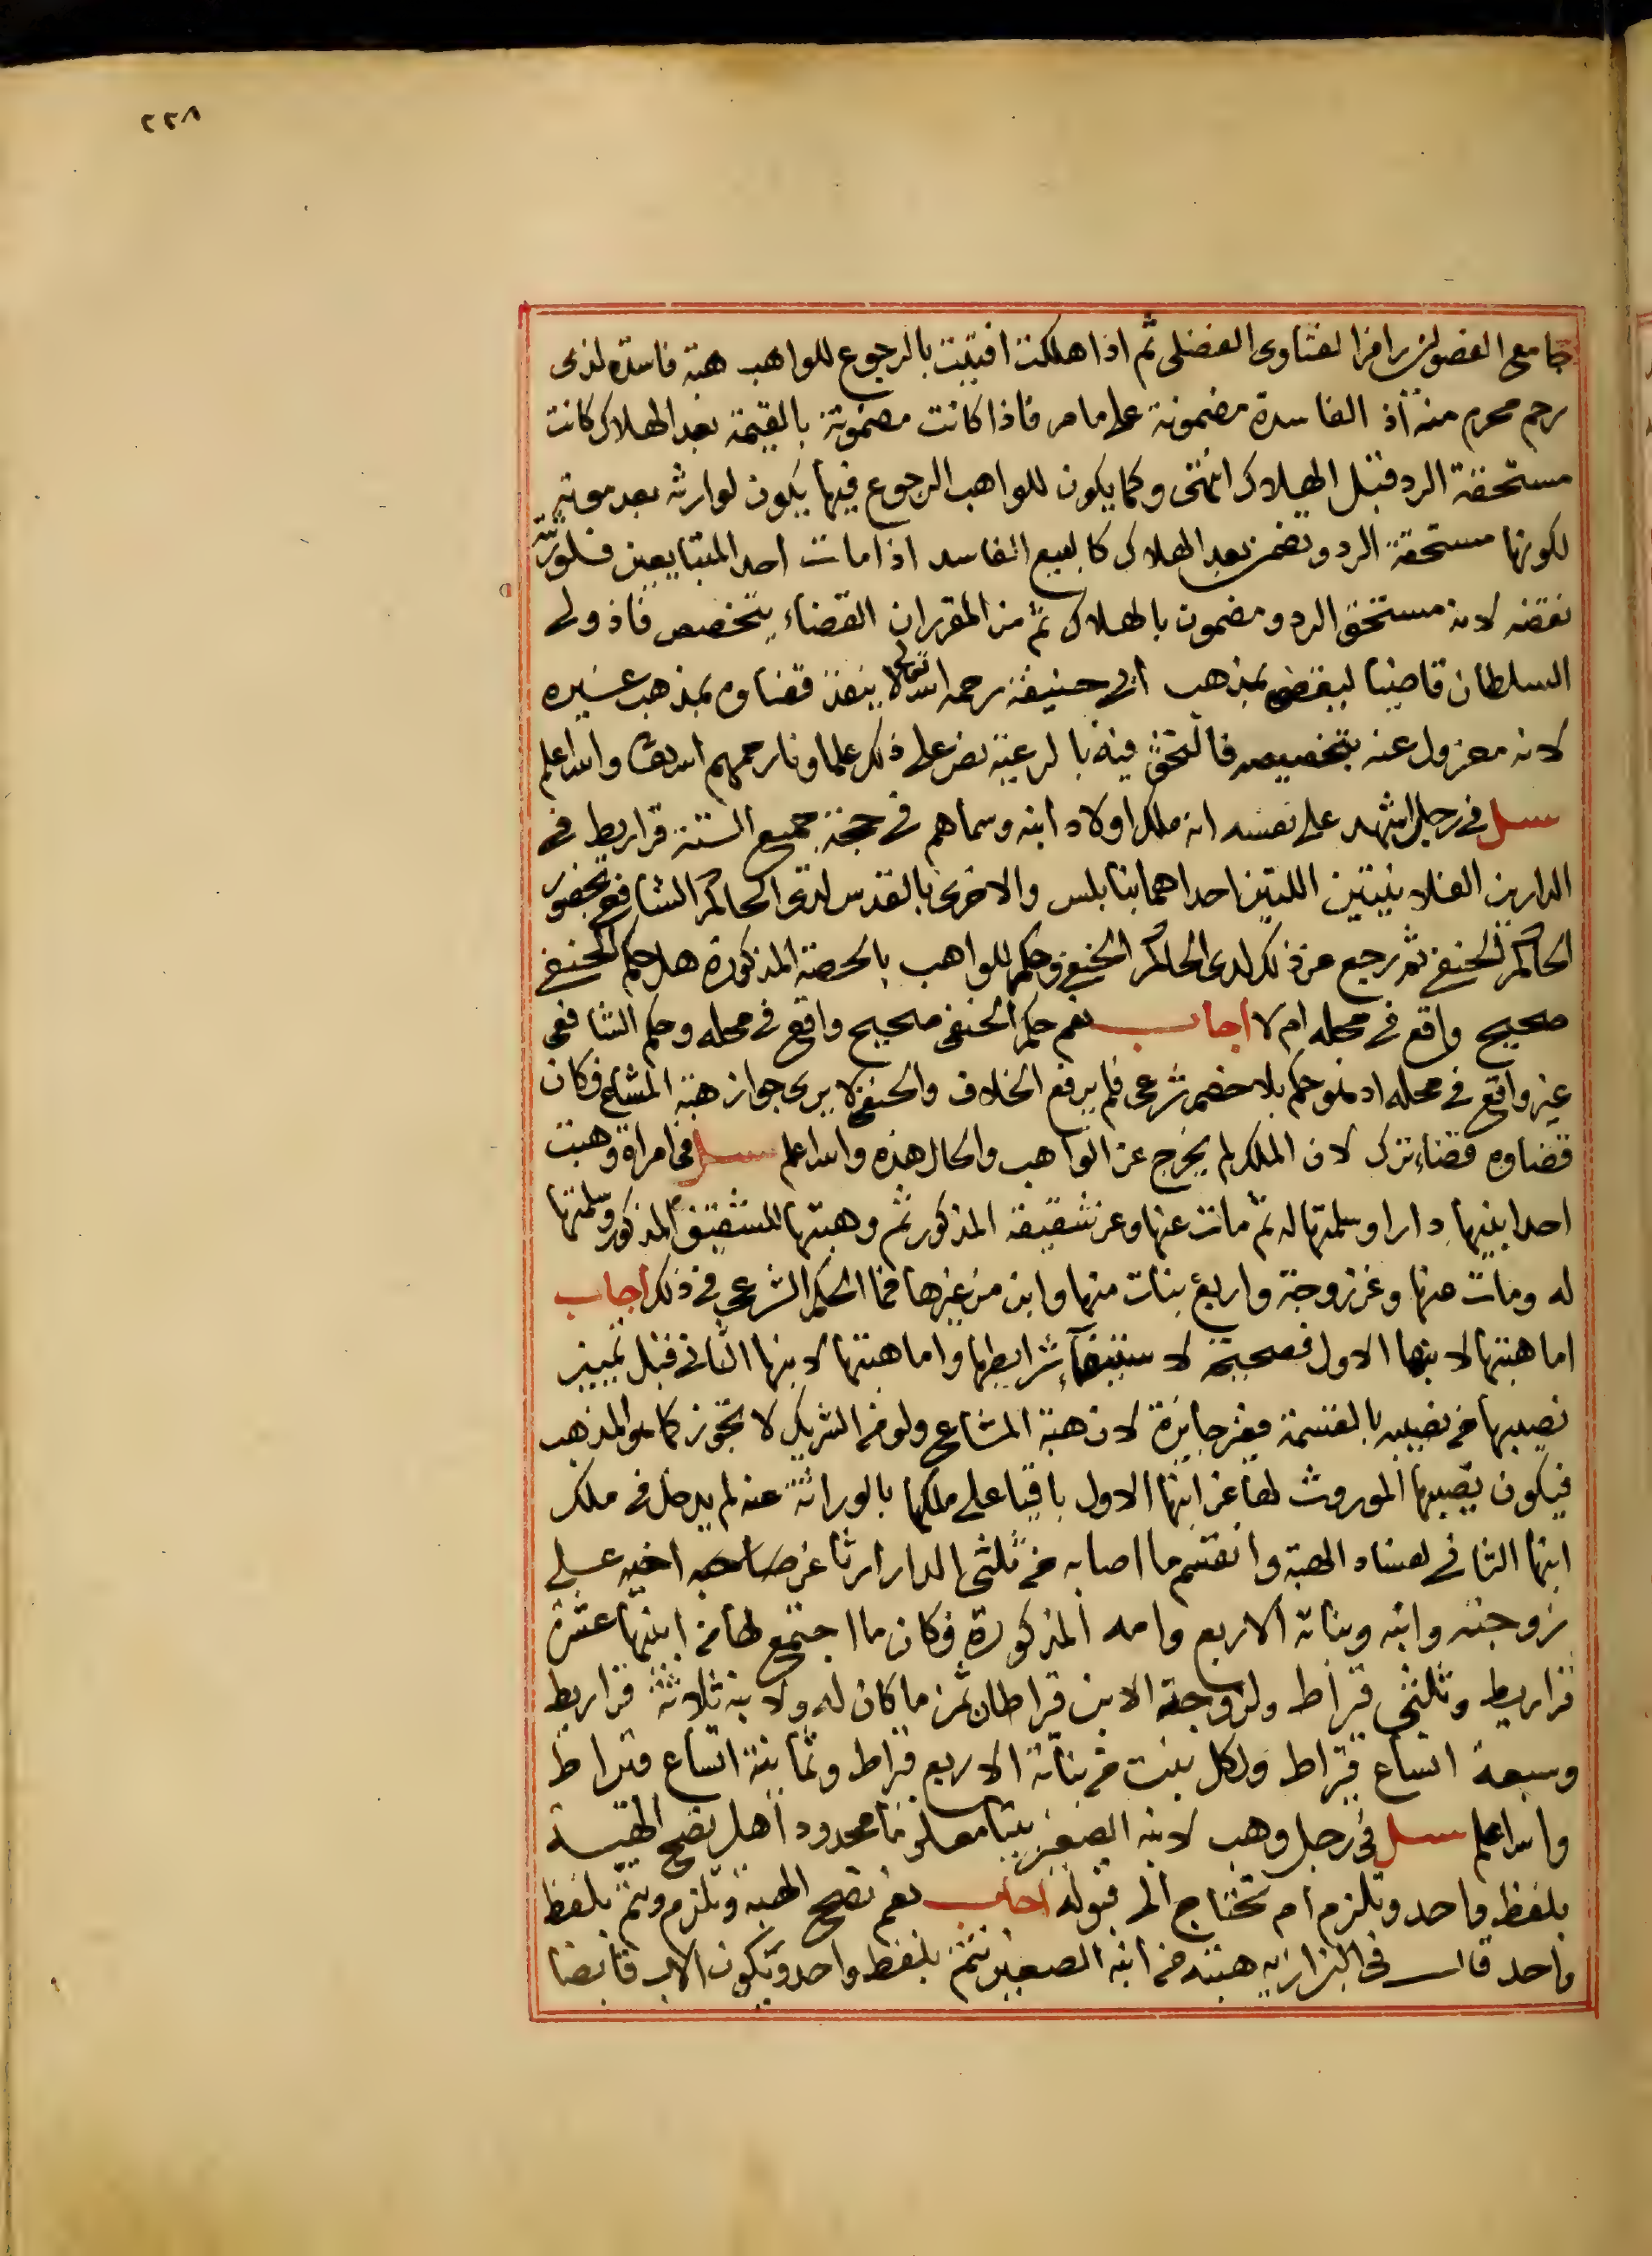 ٢٢٨
جامعى الفصولين رامزا لفتاوى الفضلى ثم اذا هلكت افتيت بالرجوع للواهب هبة فاسدة لذى
رحم محرم منه اذ الفاسدة مضمونة على ما مر فاذا كانت مضمونة بالقيمة بعد الهلاك كانت
مستحقة الرد قبل الهلاك انتهى وكما يكون للواهب الرجوع فيها يكون لوارثه بعد موته
لكونها مستحقة الرد وتضمن بعد الهلاك كالبيع الفاسد اذا مات احد المتبايعين فلورثته
نقضه لانه مستحق الرد ومضمون بالهلاك ثم من المقرر ان القضاء يتخصص فاذ ولى
السلطان قاضيا ليقضى بمذهب ابى حنيفة رحمه الله تعالى لا ينفذ قضاوه بمذهب غيره
لانه معزول عنه بتخصيصه فالتحق فيه بالرعية نص على ذلك علماونا رحمهم الله تعالى والله اعلم
سئل فى رجل اشهد على نفسه انه ملك اولاد ابنه وسماهم فى حجة جميع الستة قراريط فى
الدارين الفلانيتين اللتين احداهما بنابلس والاخرى بالقدس لدى الحاكم الشافعى بحضور
الحاكم الحنفى ثم رجع عن ذلك لدى الحاكم الحنفى وحكم للواهب بالحصة المذكورة هل حكم الحنفى
صحيح واقع فى محله ام لا اجاب نعم حكم الحنفى صحيح واقع فى محله وحكم الشافعى
غير واقع فى محله اذ هو حكم بلا خصم شرعى فلم يرفع الخلاف والحنفى لا يرى جواز هبة المشاع فكان
قضاوه قضاء ترك لان الملك لم يخرج عن الواهب والحال هذه والله اعلم سئل فى امراة وهبت
احد ابنيها دارا وسلمتها له ثم مات عنها وعن شقيقه المذكور ثم وهبتها للشقيق المذكور وسلمتها
له ومات عنها وعن زوجة واربع بنات منها وابن من غيرها فما الحكم الشرعى فى ذلك اجاب
اما هبتها لابنها الاول فصحيحة لاستيفاء شرايطها واما هبتها لابنها الثانى قبل تمييز
نصيبها من نصيبه بالقسمة فغير جايزة لان هبة المشاع ولو من الشريك لا تجوز كما هو المذهب
فيكون نصيبها الموروث لها عن ابنها الاول باقيا على ملكها بالوراثة عنه لم يدخل فى ملك
ابنها الثانى لفساد الهبة وانقسم ما اصابه من ثلثى الدار ارثا عن صاحبه اخيه على
زوجته وابنه وبناته الاربع وامه المذكورة فكان ما اجتمع لها من ابنيها عشرة
قراريط وثلثى قراط ولزوجة الابن قراطان ثمن ما كان له ولابنه ثلاثة قراريط
وسبعة اتساع قراط ولكل بنت من بناته الاربع قراط وثمانية اتساع قراط
والله اعلم سئل فى رجل وهب لابنه الصغير بيتا معلوما محدودا هل تصح الهبة
بلفظ واحد وتلزم ام تحتاج الى قبوله اجاب نعم تصح الهبة وتلزم وتتم بلفظ
واحد قال فى البزازيه هبته من ابنه الصغير تتم بلفظ واحد ويكون الاب قابضا